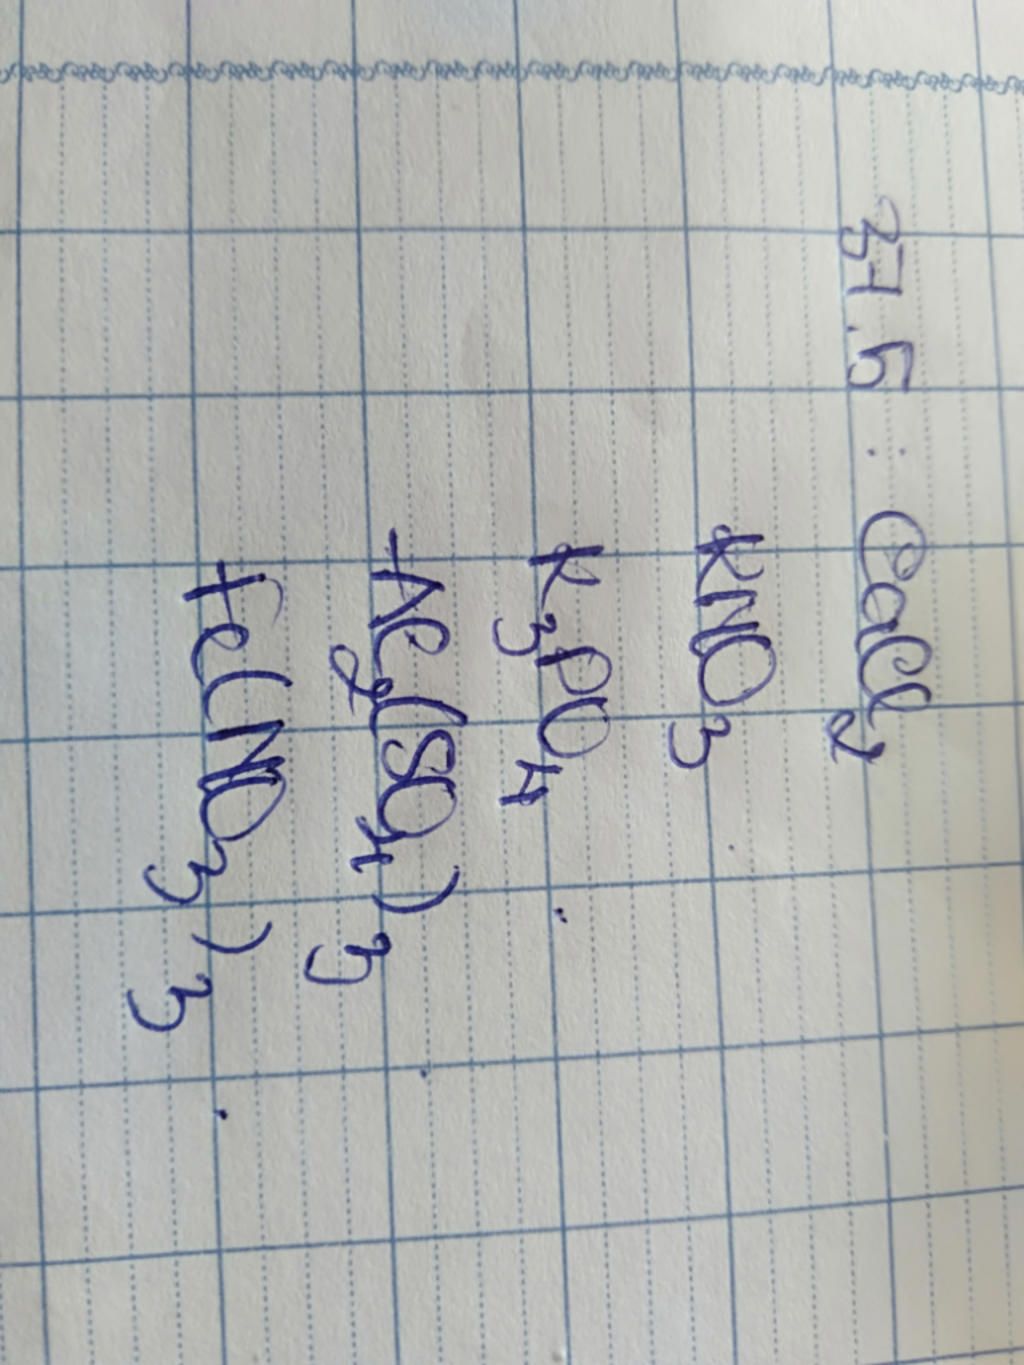 37.5 : CaCl2
KNO3
K3PO4
Al2(SO4)3
Fe(NO3)3